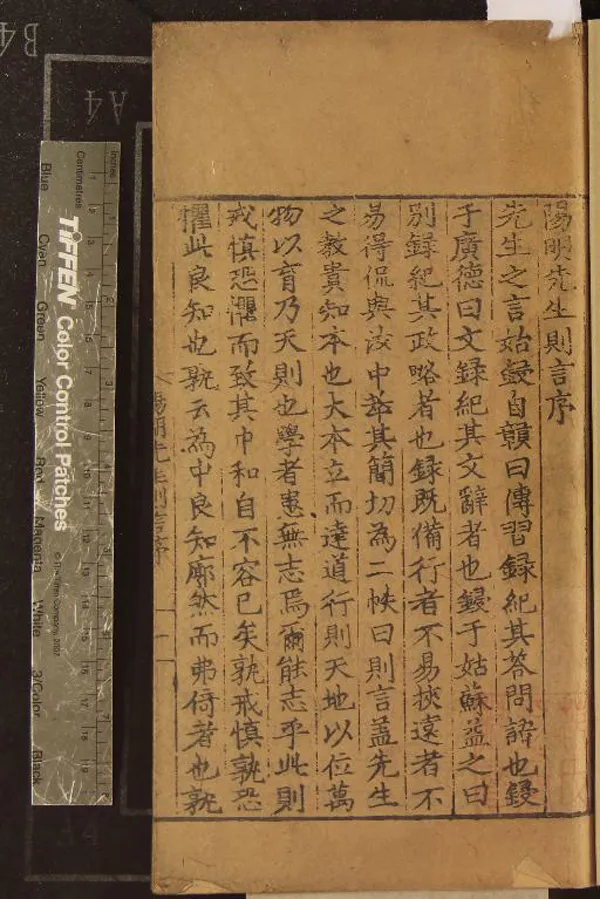 陽明先生則言序
先生之言始鋟自贛曰傳習録紀其答問語也鋟
于廣德曰文録紀其文辭者也鋟于姑蘇益之曰
别録紀其政略者也録既備行者不易挾遠者不
易得侃與汝中萃其簡切為二帙曰則言葢先生
之教貴知本也大本立而達道行則天地以位萬
物以育乃天則也學者患無志焉爾能志乎此則
戒慎恐懼而致其中和自不容已矣孰戒慎孰恐
懼此良知也孰云為中良知廓然而弗倚者也孰
陽明先生則言序
一
Inches
Centimetres
TIFFEN Color Control Patches
© The Tiffen Company, 2007
Blue
Cyan
Green
Yellow
Red
Magenta
White
3/Color
Black
B4
A4